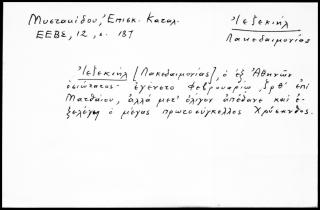 Μυστακίδου, Ἐπισκ. Καταλ.
ΕΕΒΣ, 12, σ. 187
Ἰεζεκιήλ
Λακεδαιμονίας
Ἰεζεκιήλ [Λακεδαιμονίας], ὁ ἐξ Ἀθηνῶν
ὁσιώτατος - ἐγένετο Φεβρουαρίῳ ἐπὶ
Ματθαίου, ἀλλὰ μετ' ὀλίγον ἀπέθανε καὶ ἐ-
ξελέγη ὁ μέγας πρωτοσύγκελλος Χρύσανθος.